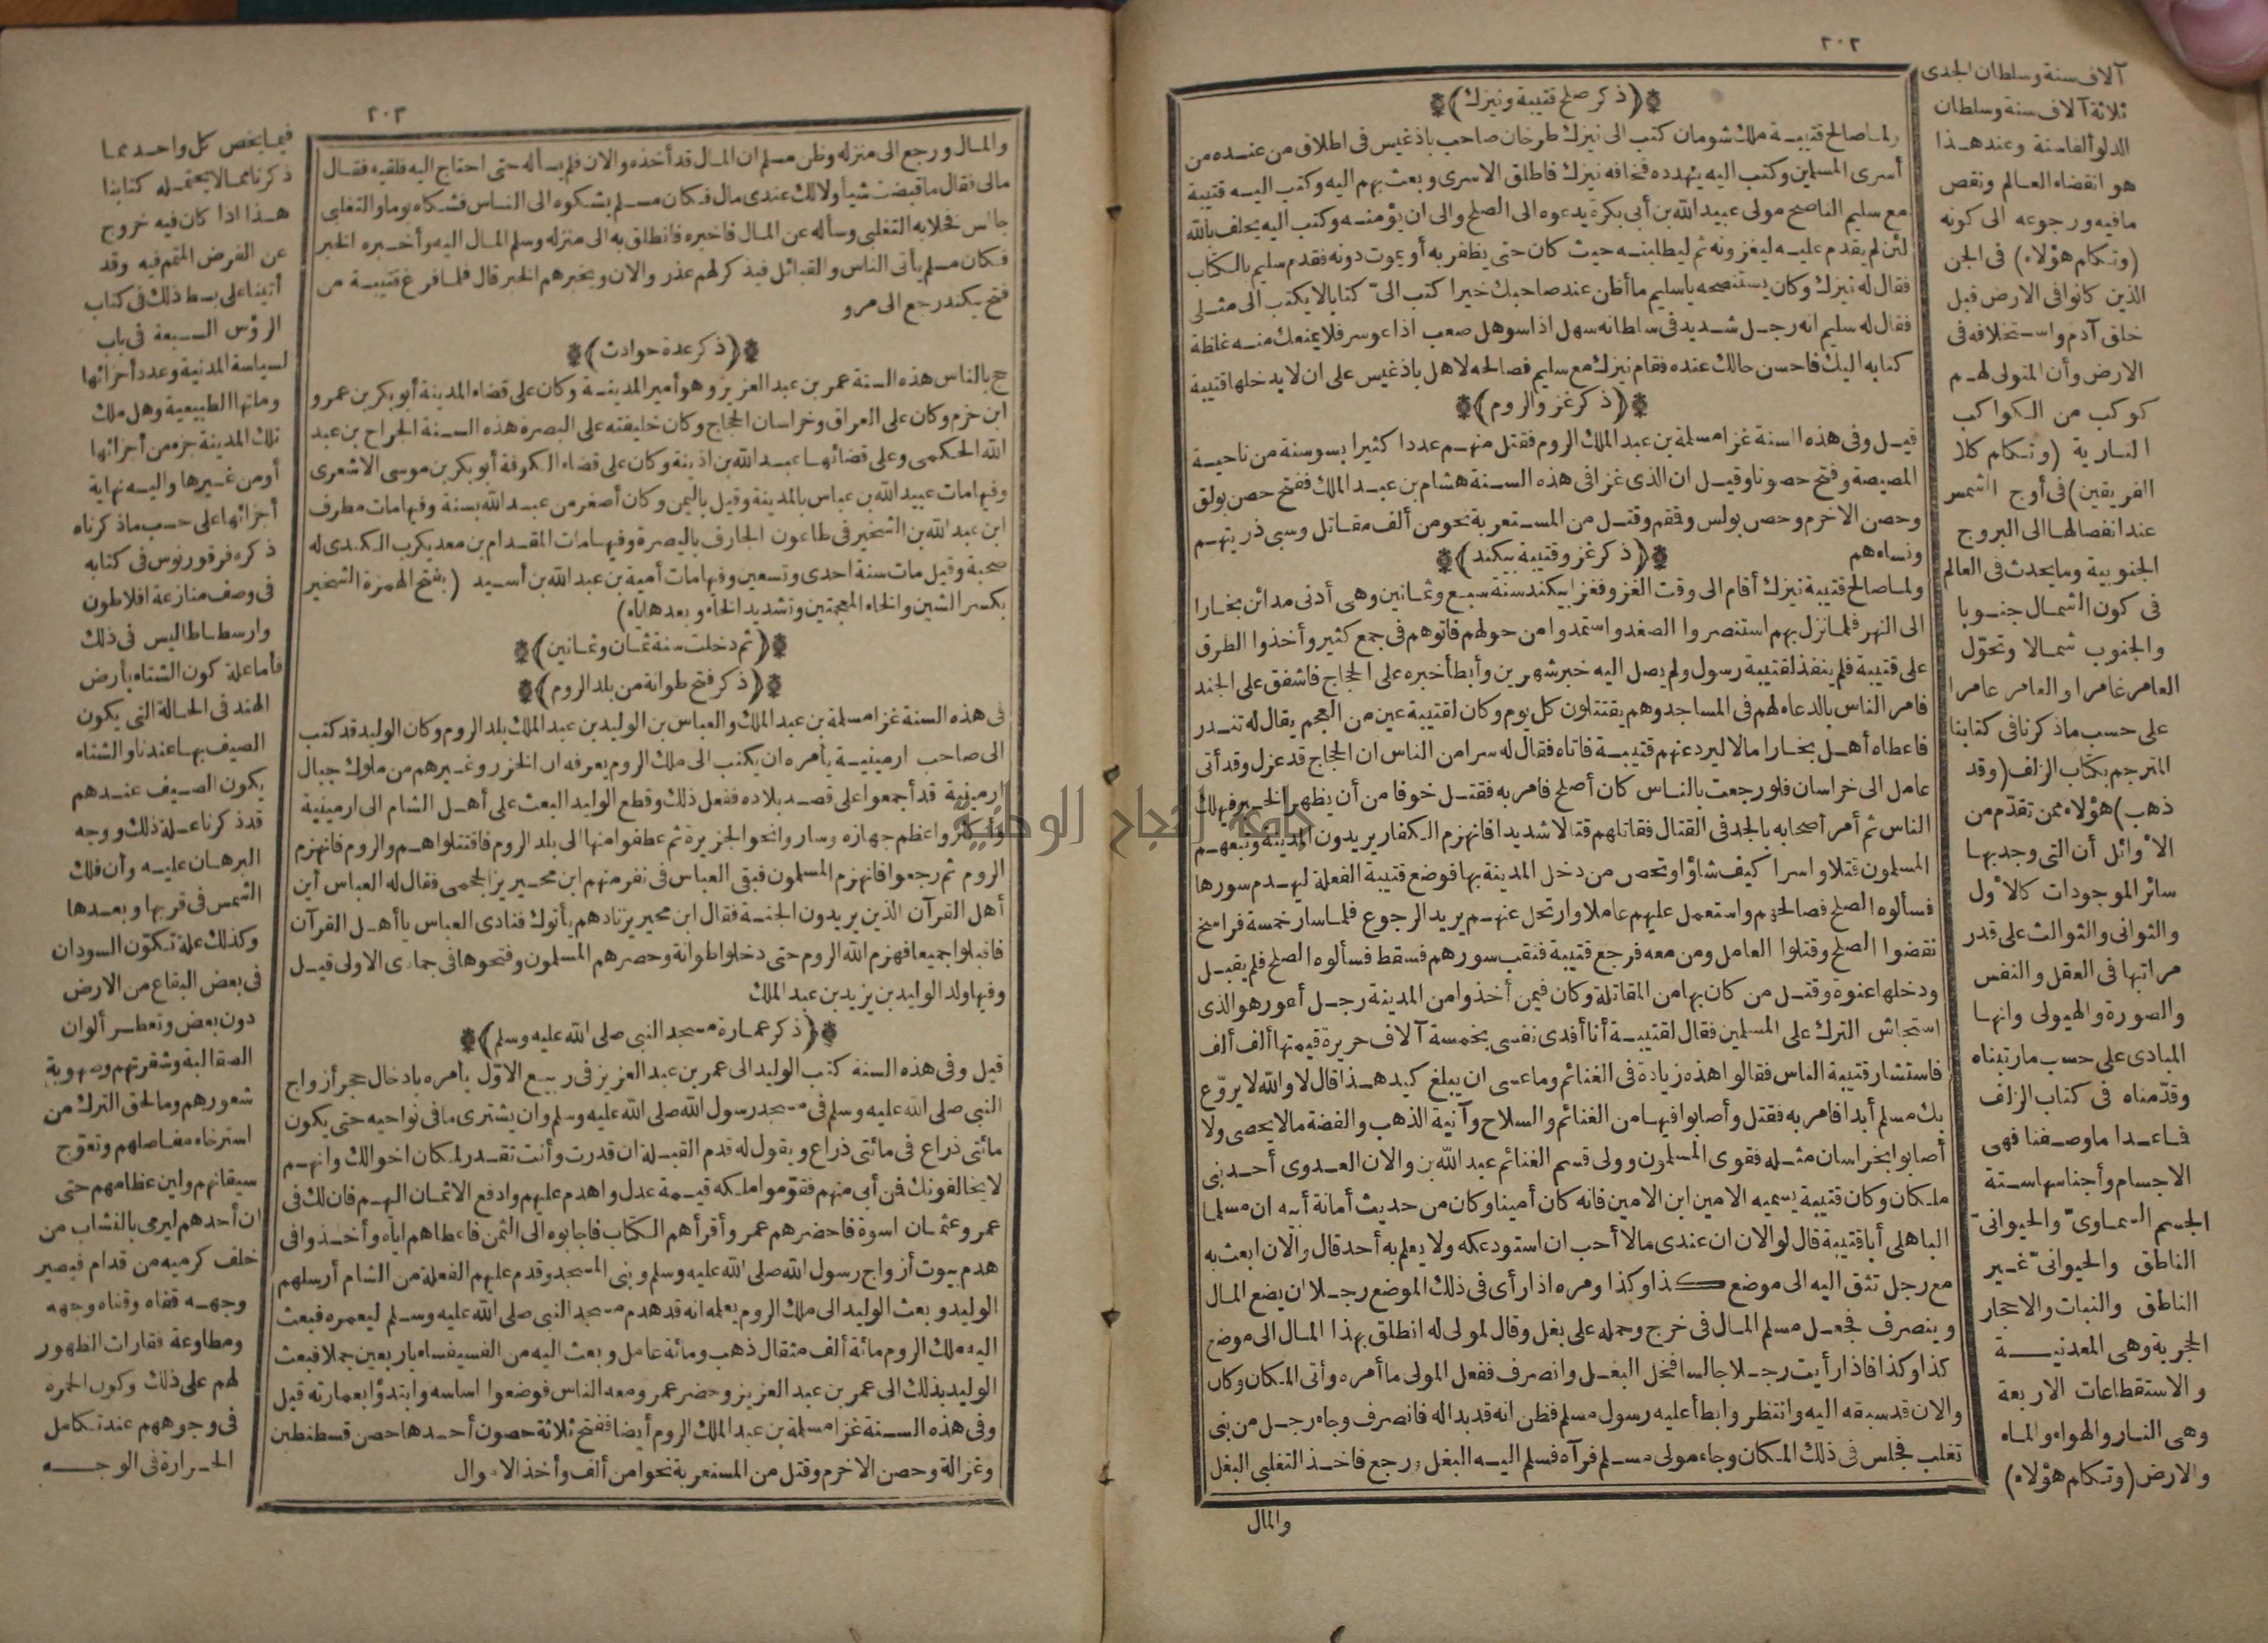 ٢٠٢
﴿ذكر صلح قتيبة ونيزك﴾
ولما صالح قتيبة ملك شومان كتب الى نيزك طرخان صاحب باذغيس فى اطلاق من عنده من
أسرى المسلمين وكتب اليه يتهدده فخافه نيزك فاطلق الاسرى وبعث بهم اليه وكتب اليه قتيبة
مع سليم الناصح مولى عبيد الله بن أبى بكرة يدعوه الى الصلح والى ان يؤمنه وكتب اليه يحلف بالله
لئن لم يقدم عليه ليغزونه ثم ليطلبنه حيث كان حتى يظفر به أو يموت دونه فقدم سليم بالكتاب
فقال له نيزك وكان يستنصحه ياسليم ما أظن عند صاحبك خيرا كتب الىّ كتابا لا يكتب الى مثلى
فقال له سليم انه رجل شديد فى سلطانه سهل اذا سوهل صعب اذا عوسر فلا يمنعك منه غلظة
كتابه اليك فاحسن حالك عنده فقام نيزك مع سليم فصالحه لاهل باذغيس على ان لا يدخلها قتيبة
﴿ذكر غزو الروم﴾
قيل وفى هذه السنة غزا مسلمة بن عبد الملك الروم فقتل منهم عددا كثيرا بسوسنة من ناحية
المصيصة وفتح حصونا وقيل ان الذى غزا فى هذه السنة هشام بن عبد الملك ففتح حصن بولق
وحصن الاخرم وحصن بولس وقمقم وقتل من المستعربة نحو من ألف مقاتل وسبى ذريتهم
ونساءهم
﴿ذكر غزو قتيبة بيكند﴾
ولما صالح قتيبة نيزك أقام الى وقت الغزو فغزا بيكند سنة سبع وثمانين وهى أدنى مدائن بخارا
الى النهر فلما نزل بهم استنصروا الصغد واستمدوا من حولهم فاتوهم فى جمع كثير وأخذوا الطرق
على قتيبة فلم ينفذ لقتيبة رسول ولم يصل اليه خبر شهرين وأبطأ خبره على الحجاج فاشفق على الجند
فامر الناس بالدعاء لهم فى المساجد وهم يقتتلون كل يوم وكان لقتيبة عين من العجم يقال له تندر
فاعطاه أهل بخارا مالا ليرد عنهم قتيبة فاتاه فقال له سرا من الناس ان الحجاج قد عزل وقد أتى
عامل الى خراسان فلو رجعت بالناس كان أصلح فامر به فقتل خوفا من أن يظهر الخبر فيهلك
الناس ثم أمر أصحابه بالجد فى القتال فقاتلهم قتالا شديدا فانهزم الكفار يريدون المدينة وتبعهم
المسلمون قتلا واسرا كيف شاؤا وتحصن من دخل المدينة بها فوضع قتيبة الفعلة ليهدم سورها
فسألوه الصلح فصالحهم واستعمل عليهم عاملا وارتحل عنهم يريد الرجوع فلما سار خمسة فراسخ
نقضوا الصلح وقتلوا العامل ومن معه فرجع قتيبة فنقب سورهم فسقط فسألوه الصلح فلم يقبل
ودخلها عنوة وقتل من كان بها من المقاتلة وكان فيمن أخذوا من المدينة رجل أعور هو الذى
استجاش الترك على المسلمين فقال لقتيبة أنا أفدى نفسى بخمسة آلاف حريرة قيمتها ألف ألف
فاستشار قتيبة الناس فقالوا هذه زيادة فى الغنائم وما عسى ان يبلغ كيد هذا قال لا والله لا يروّع
بك مسلم أبدا فامر به فقتل وأصابوا فيها من الغنائم والسلاح وآنية الذهب والفضة ما لا يحصى ولا
أصابوا بخراسان مثله فقوى المسلمون وولى قسم الغنائم عبد الله بن والان العدوى أحد بنى
ملكان وكان قتيبة يسميه الامين ابن الامين فانه كان أمينا وكان من حديث أمانة أبيه ان مسلما
الباهلى أبا قتيبة قال لوالان ان عندى مالا أحب ان استودعكه ولا يعلم به أحد قال والان ابعث به
مع رجل تثق اليه الى موضع كذا وكذا ومره اذا رأى فى ذلك الموضع رجلا ان يضع المال
وينصرف فجعل مسلم المال فى خرج وحمله على بغل وقال لمولى له انطلق بهذا المال الى موضع
كذا وكذا فاذا رأيت رجلا جالسا فخل البغل وانصرف ففعل المولى ما أمره وأتى المكان وكان
والان قد سبقه اليه وانتظر وابطأ عليه رسول مسلم فظن انه قد بدا له فانصرف وجاء رجل من بنى
تغلب فجلس فى ذلك المكان وجاء مولى مسلم فرآه فسلم اليه البغل ورجع فاخذ التغلبى البغل
والمال
آلاف سنة وسلطان الجدى
ثلاثة آلاف سنة وسلطان
الدلو ألفا سنة وعند هذا
هو انقضاء العالم ونقص
ما فيه ورجوعه الى كونه
(وتكلم هؤلاء) فى الجن
الذين كانوا فى الارض قبل
خلق آدم واستخلافه فى
الارض وأن المتولى لهم
كوكب من الكواكب
النارية (وتكلم كلا
الفريقين) فى أوج الشمس
عند انفصالها الى البروج
الجنوبية وما يحدث فى العالم
فى كون الشمال جنوبا
والجنوب شمالا وتحوّل
العامر غامرا والغامر عامرا
على حسب ما ذكرنا فى كتابنا
المترجم بكتاب الزلف (وقد
ذهب) هؤلاء ممن تقدّم من
الأوائل أن التى وجد بها
سائر الموجودات كالأول
والثوانى والثوالث على قدر
مراتبها فى العقل والنفس
والصورة والهيولى وانها
المبادى على حسب ما رتبناه
وقدّمناه فى كتاب الزلف
فاعدا ما وصفنا فهى
الاجسام وأجناسها ستة
الجسم السماوىّ والحيوانىّ
الناطق والحيوانىّ غير
الناطق والنبات والاحجار
الحجرية وهى المعدنية
والاستقطاعات الاربعة
وهى النار والهواء والماء
والارض (وتكلم هؤلاء)
٢٠٣
والمال ورجع الى منزله وظن مسلم ان المال قد أخذه والان فلم يسأله حتى احتاج اليه فلقيه فقال
مالى فقال ما قبضت شيأ ولا لك عندى مال فكان مسلم يشكوه الى الناس فشكاه يوما والتغلبى
جالس فخلا به التغلبى وسأله عن المال فاخبره فانطلق به الى منزله وسلم المال اليه وأخبره الخبر
فكان مسلم يأتى الناس والقبائل فيذكر لهم عذر والان ويخبرهم الخبر قال فلما فرغ قتيبة من
فتح بيكند رجع الى مرو
﴿ذكر عدة حوادث﴾
حج بالناس هذه السنة عمر بن عبد العزيز وهو أمير المدينة وكان على قضاء المدينة أبو بكر بن عمرو
ابن حزم وكان على العراق وخراسان الحجاج وكان خليفته على البصرة هذه السنة الجراح بن عبد
الله الحكمى وعلى قضائها عبد الله بن اذينة وكان على قضاء الكوفة أبو بكر بن موسى الاشعرى
وفيها مات عبيد الله بن عباس بالمدينة وقيل باليمن وكان أصغر من عبد الله بسنة وفيها مات مطرف
ابن عبد الله بن الشخير فى طاعون الجارف بالبصرة وفيها مات المقدام بن معديكرب الكندى له
صحبة وقيل مات سنة احدى وتسعين وفيها مات أمية بن عبد الله بن أسيد (بفتح الهمزة الشخير
بكسر الشين والخاء المعجمتين وتشديد الخاء وبعدها ياء)
﴿ثم دخلت سنة ثمان وثمانين﴾
﴿ذكر فتح طوانة من بلد الروم﴾
فى هذه السنة غزا مسلمة بن عبد الملك والعباس بن الوليد بن عبد الملك بلد الروم وكان الوليد قد كتب
الى صاحب ارمينية يأمره ان يكتب الى ملك الروم يعرفه ان الخزر وغيرهم من ملوك جبال
ارمينية قد أجمعوا على قصد بلاده ففعل ذلك وقطع الوليد البعث على أهل الشام الى ارمينية
وأكثر واعظم جهازه وساروا نحو الجزيرة ثم عطفوا منها الى بلد الروم فاقتتلوا هم والروم فانهزم
الروم ثم رجعوا فانهزم المسلمون فبقى العباس فى نفر منهم ابن محيريز الجمحى فقال له العباس أين
أهل القرآن الذين يريدون الجنة فقال ابن محيريز نادهم يأتوك فنادى العباس يا أهل القرآن
فاقبلوا جميعا فهزم الله الروم حتى دخلوا طوانة وحصرهم المسلمون وفتحوها فى جمادى الاولى قيل
وفيها ولد الوليد بن يزيد بن عبد الملك
﴿ذكر عمارة مسجد النبى صلى الله عليه وسلم﴾
قيل وفى هذه السنة كتب الوليد الى عمر بن عبد العزيز فى ربيع الاوّل يأمره بادخال حجر أزواج
النبى صلى الله عليه وسلم فى مسجد رسول الله صلى الله عليه وسلم وان يشترى ما فى نواحيه حتى يكون
مائتى ذراع فى مائتى ذراع ويقول له قدم القبلة ان قدرت وأنت تقدر لمكان اخوالك وانهم
لا يخالفونك فمن أبى منهم فقوّموا ملكه قيمة عدل واهدم عليهم وادفع الاثمان اليهم فان لك فى
عمر وعثمان اسوة فاحضرهم عمر وأقرأهم الكتاب فاجابوه الى الثمن فاعطاهم اياه وأخذوا فى
هدم بيوت أزواج رسول الله صلى الله عليه وسلم وبنى المسجد وقدم عليهم الفعلة من الشام أرسلهم
الوليد وبعث الوليد الى ملك الروم يعلمه انه قد هدم مسجد النبى صلى الله عليه وسلم ليعمره فبعث
اليه ملك الروم مائة ألف مثقال ذهب ومائة عامل وبعث اليه من الفسيفساء باربعين جملا فبعث
الوليد بذلك الى عمر بن عبد العزيز وحضر عمر ومعه الناس فوضعوا اساسه وابتدؤا بعمارته قيل
وفى هذه السنة غزا مسلمة بن عبد الملك الروم أيضا ففتح ثلاثة حصون أحدها حصن قسطنطين
وغزالة وحصن الاخرم وقتل من المستعربة نحوا من ألف وأخذ الاموال
فيما يخص كل واحد مما
ذكرنا مما لا يحتمله كتابنا
هذا اذا كان فيه خروج
عن الغرض المتمم فيه وقد
أتينا على بسط ذلك فى كتاب
الرؤس السبعة فى باب
السياسة المدنية وعدد أجزائها
وملتها الطبيعية وهل ملك
تلك المدينة جزء من أجزائها
أو من غيرها واليه نهاية
أجزائها على حسب ما ذكرناه
ذكره فرفوريوس فى كتابه
فى وصف منازعة افلاطون
وارسطاطاليس فى ذلك
فأما علة كون الشتاء بأرض
الهند فى الحالة التى يكون
الصيف بها عندنا والشتاء
يكون الصيف عندهم
قد ذكرنا علة ذلك ووجه
البرهان عليه وأن فلك
الشمس فى قربها وبعدها
وكذلك علة تكوّن السودان
فى بعض البقاع من الارض
دون بعض وتعطر ألوان
الصقالبة وشقرتهم وصهوبة
شعورهم وما لحق الترك من
استرخاء مفاصلهم وتعوّج
سيقانهم ولين عظامهم حتى
ان أحدهم ليرمى بالنشاب من
خلف كرميه من قدام فيصير
وجهه قفاه وقفاه وجهه
ومطاوعة فقارات الظهور
لهم على ذلك وكون الحمرة
فى وجوههم عند تكامل
الحرارة فى الوجه
جامعة النجاح الوطنية